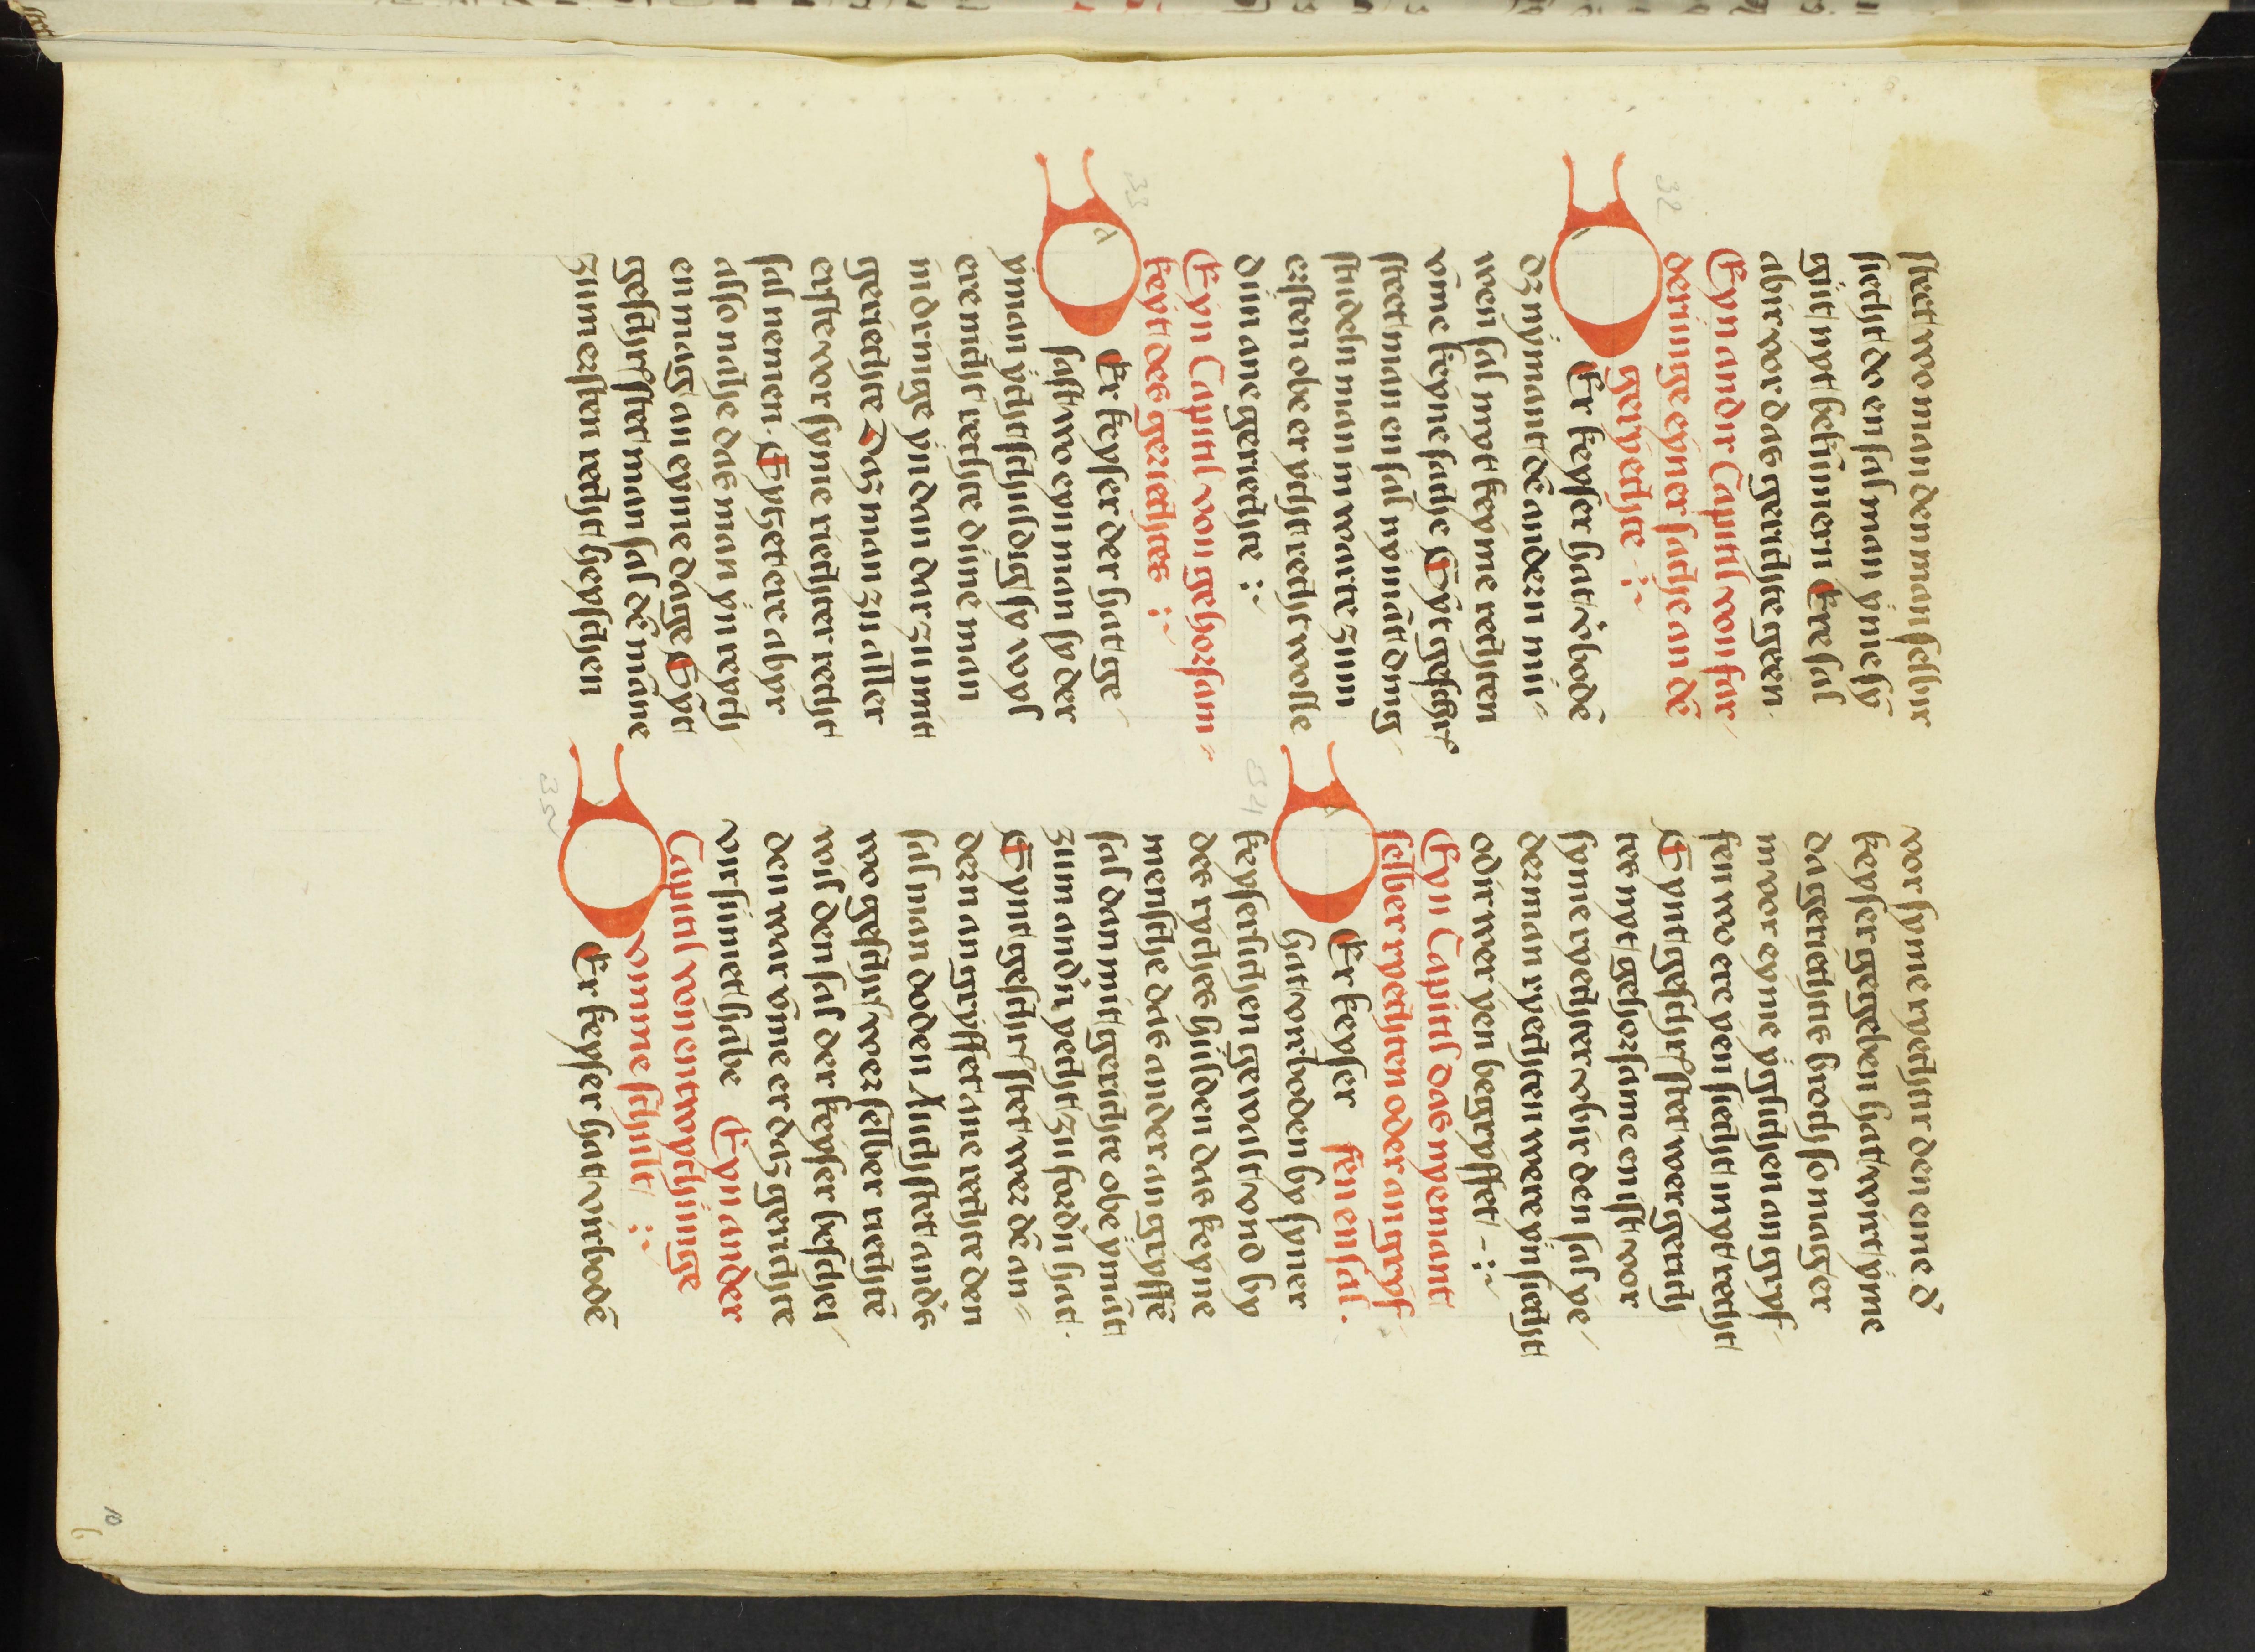 steet wo man den man selbir
siecht do en sal man yme sy
gut nyt bekumern Ere sal
abir vor das gerichte geen
Eyn andir Capittl von fur
derunge eyner sache an dē
geryechte
32
Er keyser hat v̾bodē
dz nymant dē andern mu=
wen sal myt keyme rechten
vme keyne sache
steet man en sal nymāt dring
man warte zum
ersten obe er ycht recht wolle
dun ane gerichte
Eyn Capittl von gehorsam=
keyt des gerichtes
33
Er keyser der hat ge
saßt wo eyn man sy der
yman ycht schuldig sy wyl
ere nicht rechte dune man
in dringe yn dan dar zu mit
gerichte Daz man zu aller
erste vor syme richter recht
sal nemen. Eyscet ere abyr
also nahe das man yn
en mag an eyme dage Eyt
geschrͤ stet man sal dē māne
zum ersten recht heyschen
vor syme rychter den eme d̾
keyser gegeben hat wirt yme
da gerichts broch so mag er
in vor eyme yglichen angryf
fen wo ere yen siecht myt recht
Eynt geschrͤ stet wer gerich
tes nyt gehorsame en ist vor
syme rychter obir den sal ye
der man rychten wer yn siecht
odir wer yen begryffet
Eyn Capittl das nyemant
selber rychten oder angryf
fen en sal.
34
Er keyser
hat vorboden by syner
keyserlichen gewalt vnd by
des ryches hulden das keyne
mensche das ander angryffē
sal dan mit gerichte obe ymāt
zum andn ycht zu fordn hat.
Eynt geschrͤ stet wer dē an=
dern angryffet ane rechte den
sal man doden Auch stet andˢ
wo geschrͤ wer selber richtē
wil den sal der keyser beschei
den war vme er daz gerichte
vorsumet habe Eyn ander
Capittl von entwychunge
vmme schult
35
Er keyser hat virbodē
10